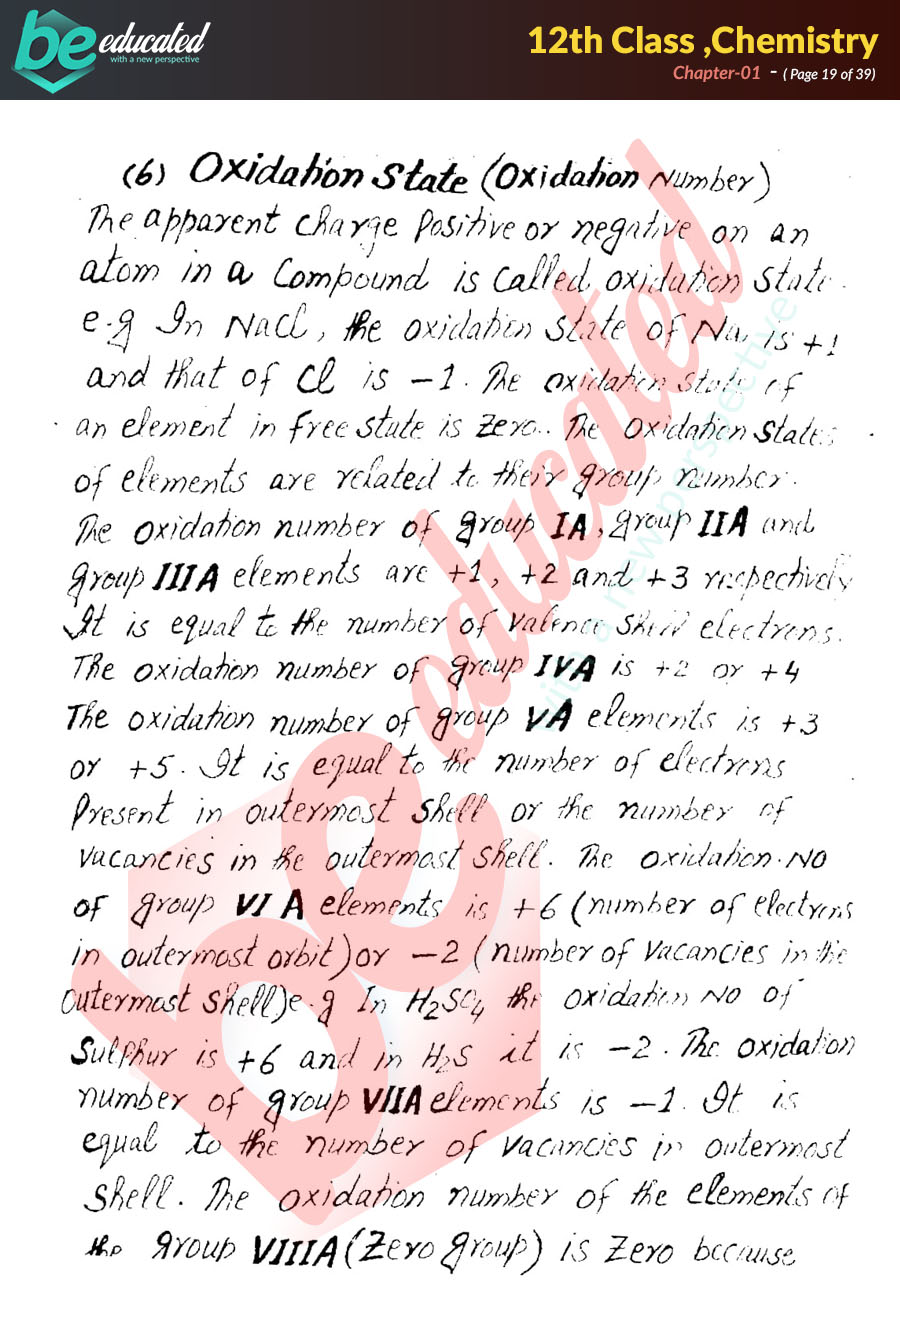 be educated
with a new perspective
12th Class ,Chemistry
Chapter-01 - ( Page 19 of 39)
(6) Oxidation State (Oxidation Number)
The apparent charge Positive or negative on an
atom in a Compound is Called oxidation State.
e.g In NaCl, the oxidation state of Na, is +1
and that of Cl is -1. The oxidation state of
an element in free state is Zero. The Oxidation States
of elements are related to their group number.
The oxidation number of group IA, group IIA and
group IIIA elements are +1, +2 and +3 respectively
It is equal to the number of valence shell electrons.
The oxidation number of group IVA is +2 or +4
The oxidation number of group VA elements is +3
or +5. It is equal to the number of electrons
Present in outermost shell or the number of
vacancies in the outermost shell. The oxidation.NO
of group VI A elements is +6 (number of electrons
in outermost orbit) or -2 (number of vacancies in the
outermost shell) e.g In H₂SO₄ the oxidation NO of
Sulphur is +6 and in H₂S it is -2. The oxidation
number of group VIIA elements is -1. It is
equal to the number of vacancies in outermost
shell. The oxidation number of the elements of
the group VIIIA (Zero group) is Zero because
be educated
with a new perspective